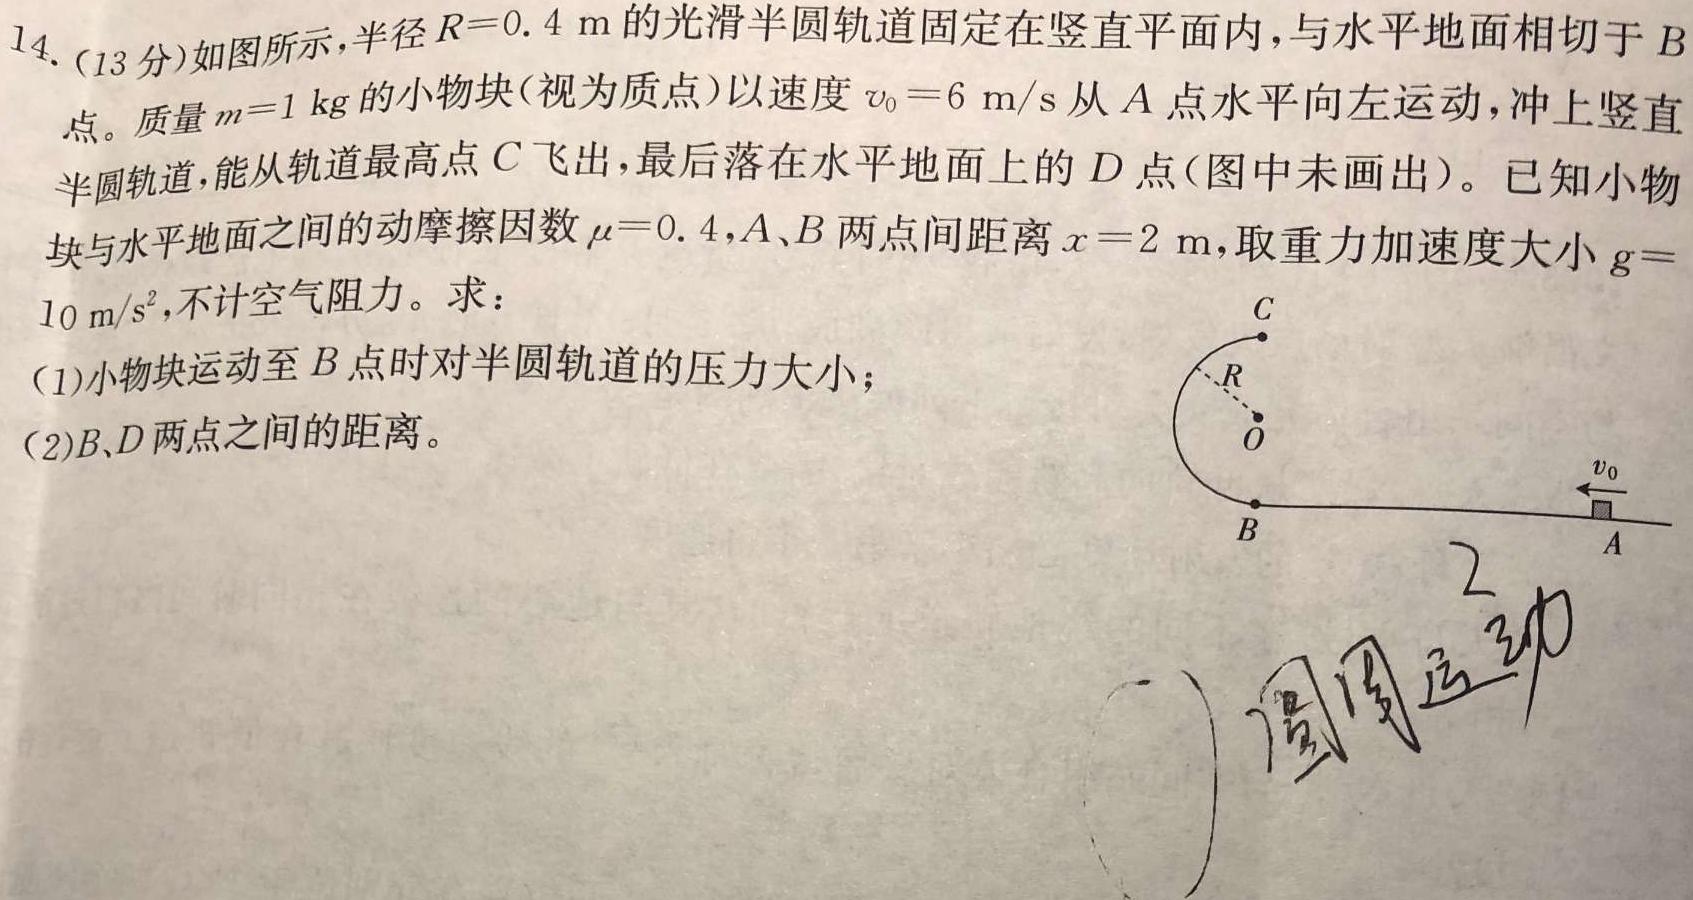 14.(13分)如图所示,半径R=0.4 m的光滑半圆轨道固定在竖直平面内,与水平地面相切于B
点。质量m=1 kg的小物块(视为质点)以速度v₀=6 m/s从A点水平向左运动,冲上竖直
半圆轨道,能从轨道最高点C飞出,最后落在水平地面上的D点(图中未画出)。已知小物
块与水平地面之间的动摩擦因数μ=0.4,A、B两点间距离x=2 m,取重力加速度大小g=
10 m/s²,不计空气阻力。求:
(1)小物块运动至B点时对半圆轨道的压力大小;
(2)B、D两点之间的距离。
C
R
O
v₀
B
A
2
圆周运动